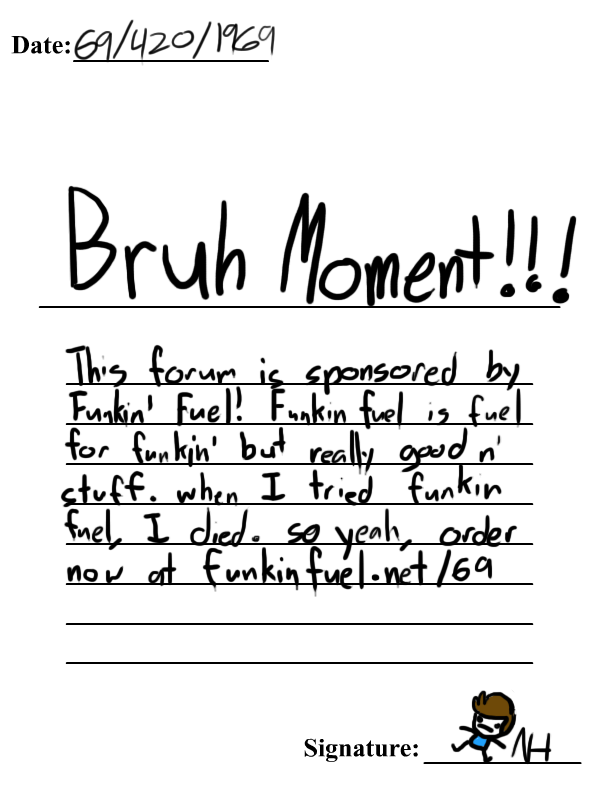 Date: 69/420/1969
Bruh Moment!!!
This forum is sponsored by
Funkin' Fuel! Funkin fuel is fuel
for funkin' but really good n'
stuff. when I tried funkin
fuel, I died. so yeah, order
now at funkinfuel.net/69
Signature: NH